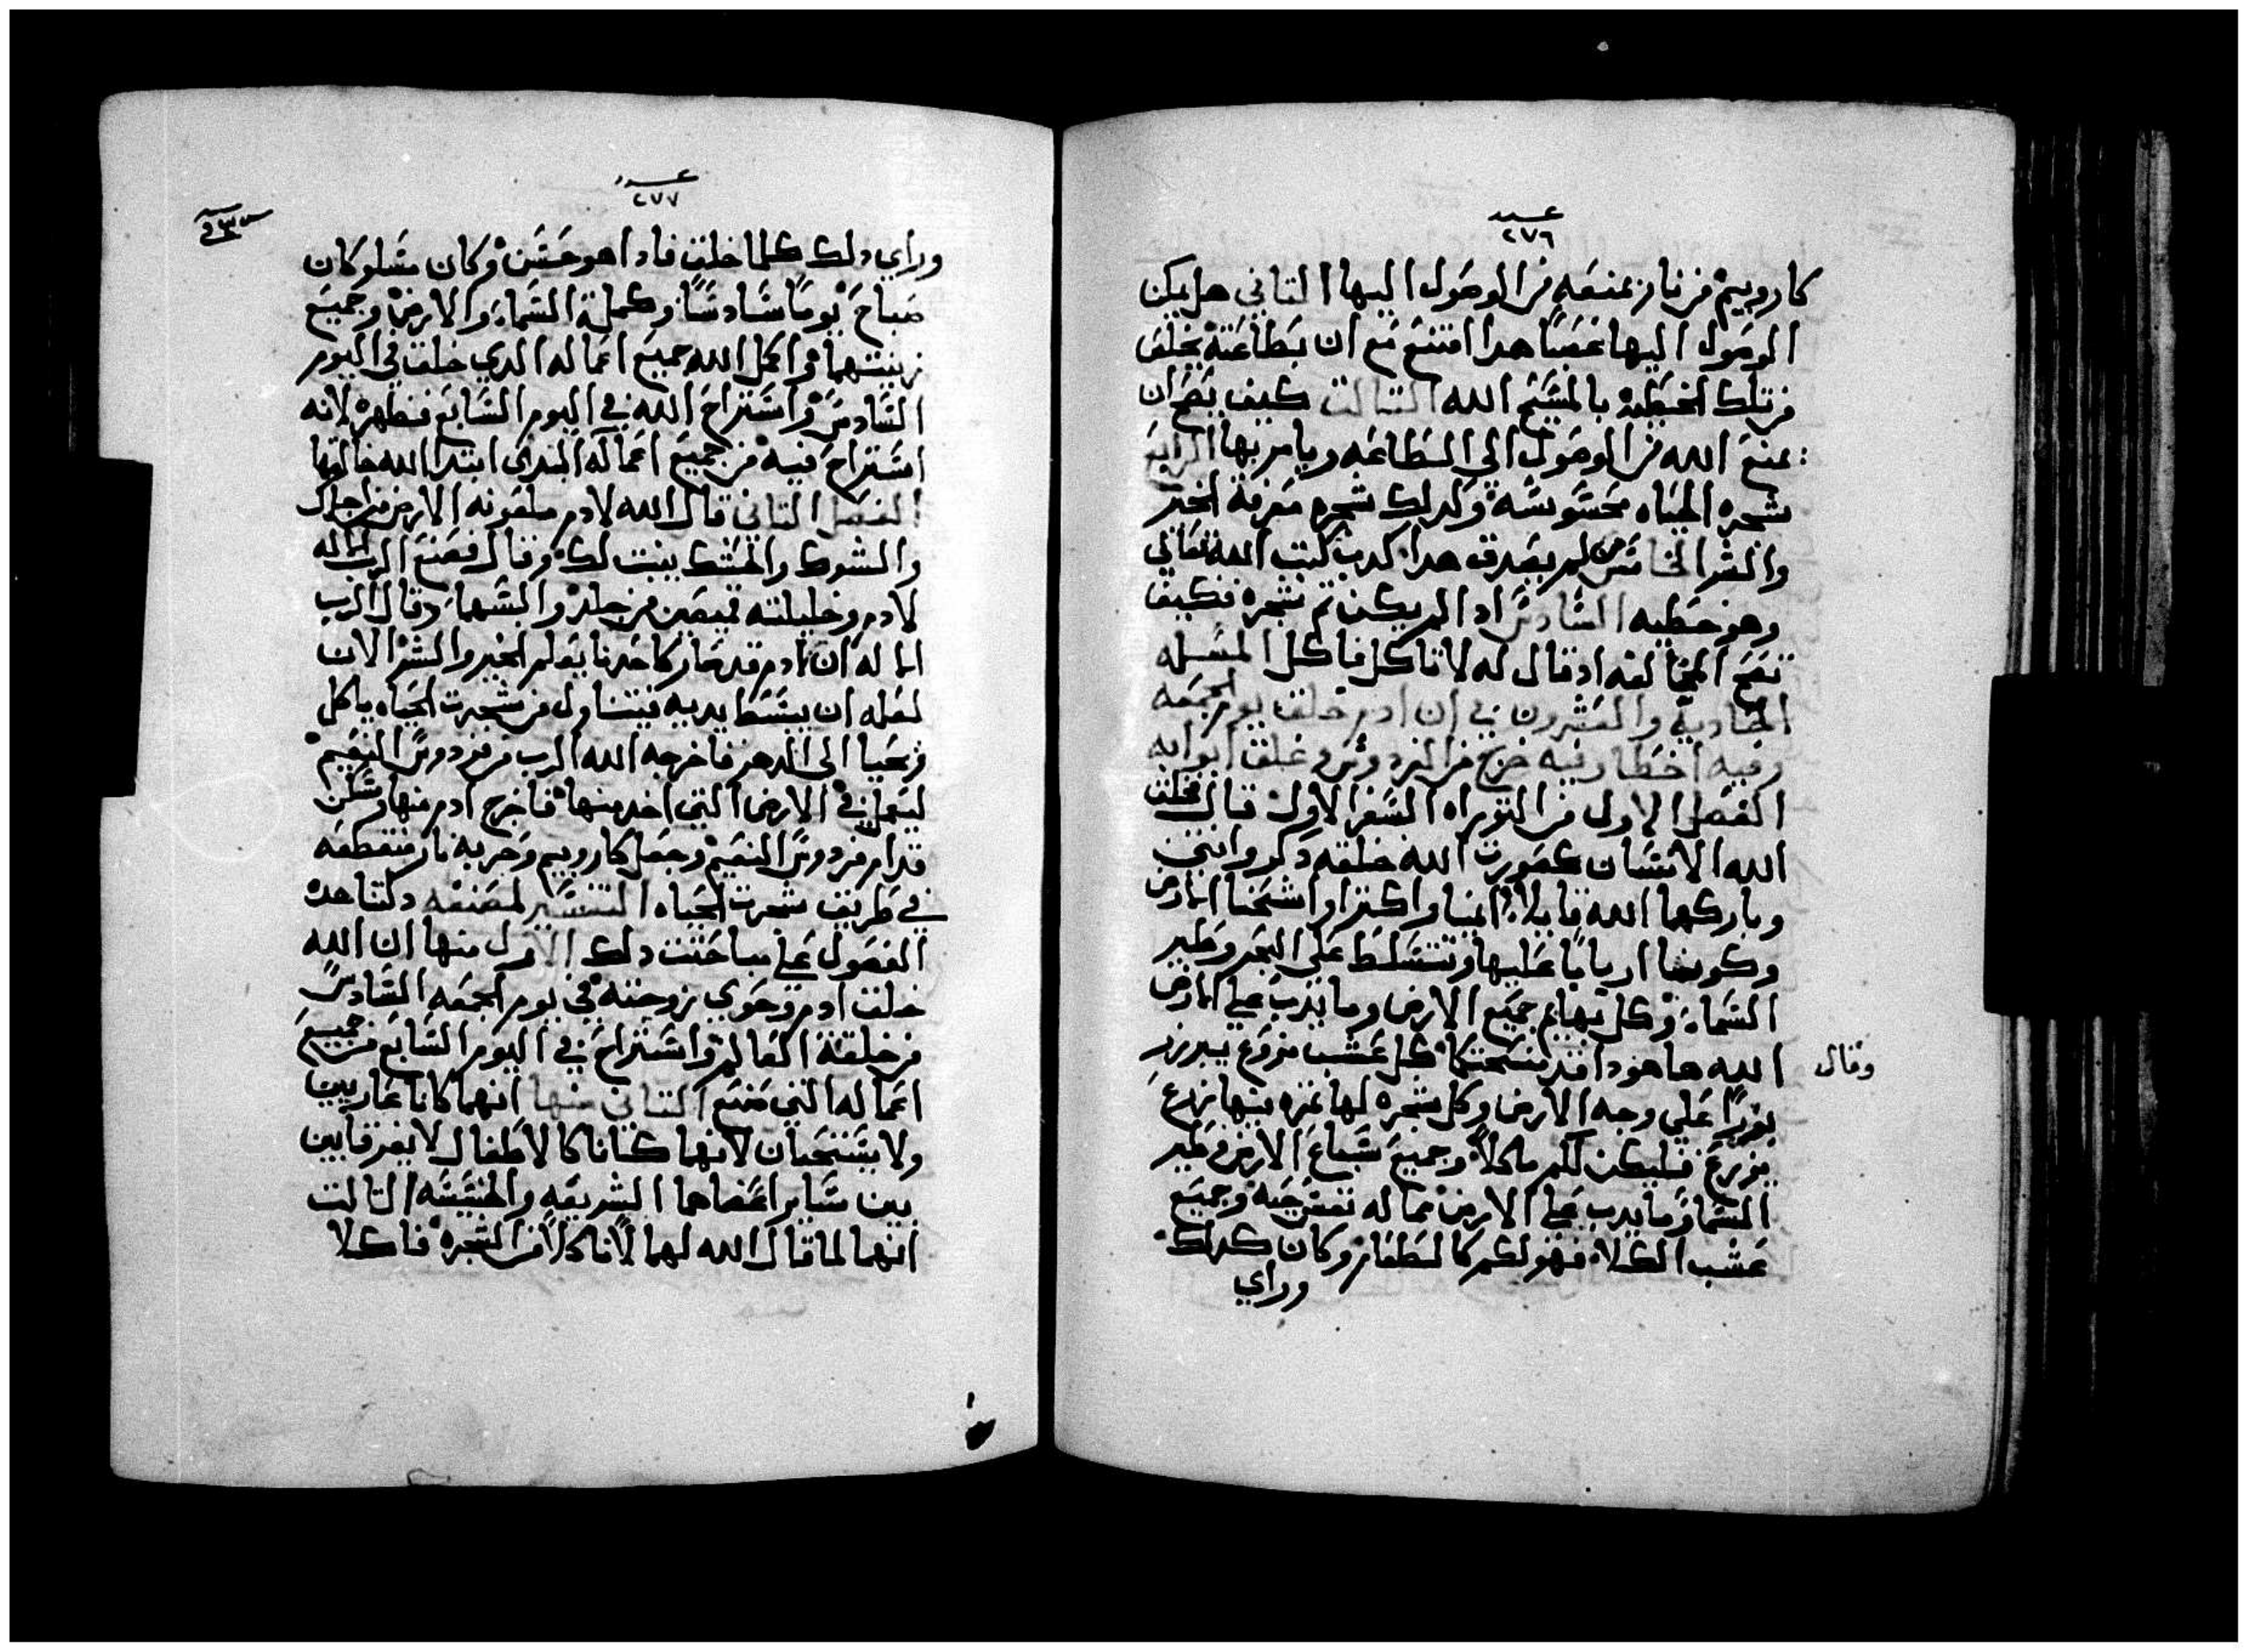 عدد
٢٧٦
كاروبيم من نار يمنعه من الوصول اليها التاني هل يمكن
الوصول اليها غصبا هدا امتنع مع ان بطاعته يخلص
من تلك الخطيه بالمسيح الله التالت كيف يصح ان
يمنع الله من الوصول الي الطاعه ويامر بها الرابع
شجره الحياه محسوسه وكدلك شجره معرفة الخير
والشر الخامس من لم يصدق هدا كدب كتب الله تعالي
وهو خطيه السادس اد الم يكن تم شجره فكيف
تصح المخالفه اد قال له لا تاكل فاكل المسله
الحاديه والعشرون في ان ادم خلق يوم الجمعه
وفيه اخطا وفيه خرج من الفردوس وغلق ابوابه
الفصل الاول من التوراه السفر الاول قال فخلق
الله الانسان كصورت الله خلقه دكر وانتي
وباركهما الله قايلا انميا واكترا واشحنا الارض
وكونا اربابا عليها وتتسلط علي البحر وطير
السماء وكل بهايم جميع الارض وما يدب علي الارض
وقال
الله ها هودا قد منحتكما كل عشب مزروع يبزر
بزرا علي وجه الارض وكل شجره لها تمره بنها زرع
يزرع فليكن لكم ماكلا وجميع سباع الارض وطير
السما وما يدب علي الارض مما له نفس حيه وجميع
عشب الكلا فهو لكم كالطعام وكان كدلك
وراي
عدد
٢٧٧
وراي دلك كلما خلق فادا هو حسن وكان مسا وكان
صباح يوما سادسا وكملة السماء والارض وجميع
زينتهما واكمل الله جميع اعماله الدي خلق في اليوم
السادس واستراح الله في اليوم السابع فطهره لانه
استراح فيه من جميع اعماله البدي ابتدا الله خالقها
الفصل التاني قال الله لادم ملعونه الارض من اجلك
والشوك والحسك ينبت لك وقال فصنع الرب الاله
لادم وخليلته قميصين من جلد والبسهما وقال الرب
الاله ان ادم قد صار كاحدنا يعلم الخير والشر الان
لعله ان يبسط يديه فيتناول من شجرت الحياه ياكل
فيحيا الى الدهر فاخرجه الله الرب من فردوس النعيم
ليعمل في الارض التي اخد منها فاخرج ادم منها وسكن
قدام فردوس النعيم وجعل كاروبيم وحربه نار منقطعه
في طريق شجرت الحياه التفسير لمصنفه دلتنا هده
الفصول علي مباحتت دلك الاول منها ان الله
خلق ادم وحوي زوجته في يوم الجمعه السادس
من خلقة العالم واستراح في اليوم السابع من جميع
اعماله التي صنع التاني منها انهما كانا عاريين
ولا يستحيان لانهما كانا كالاطفال لا يفرقا بين
بين ساير اعضاهما الشريفه والخسيسه التالت
انهما لما قال الله لهما لا تاكلا من الشجره فاكلا